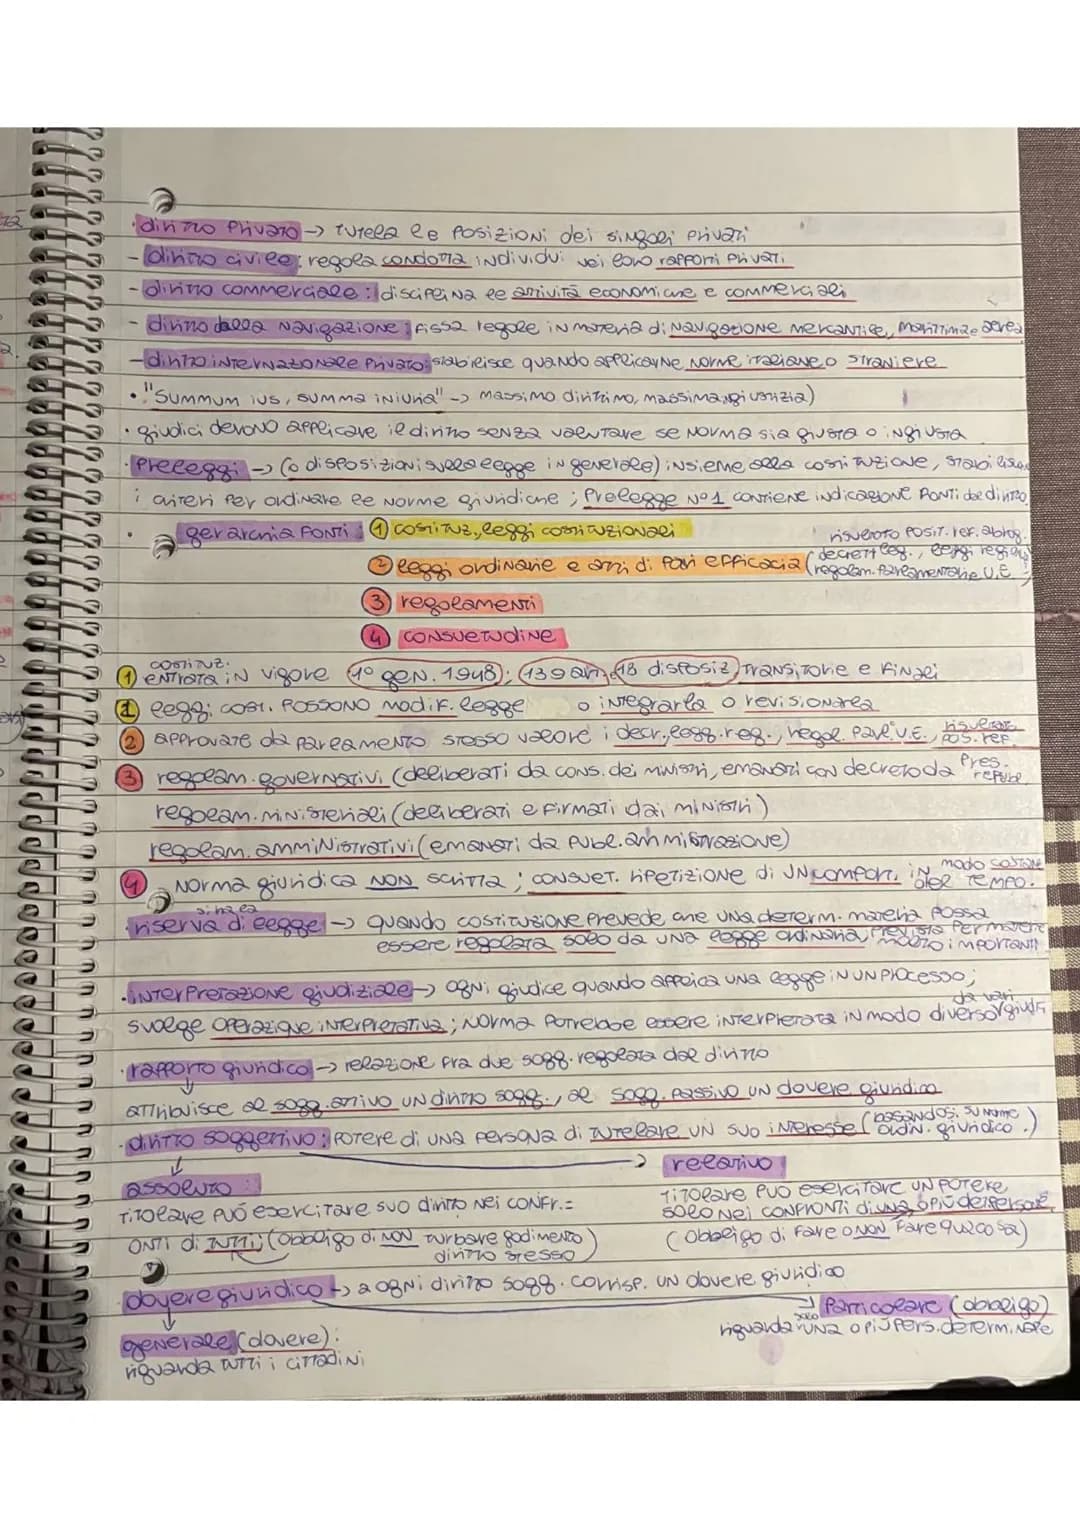 · diritto privato → tutela le posizioni dei singoli privati
- diritto civile: regola condotta individui nei loro rapporti privati
- diritto commerciale: disciplina le attività economiche e commerciali
- diritto della navigazione: fissa regole in materia di navigazione mercantile, marittima e aerea
- diritto internazionale privato: stabilisce quando applicarne norme italiane o straniere
· "Summum ius, summa iniuria" → massimo diritto, massima ingiustizia)
· giudici devono applicare il diritto senza valutare se norma sia giusta o ingiusta
· Preleggi → (o disposizioni sulla legge in generale) insieme alla costituzione, stabiliscono
i criteri per ordinare le norme giuridiche; Prelegge N°1 contiene indicazione fonti del diritto
gerarchia fonti: 1 costituz, leggi costituzionali
risultato posit. ref. abrog.
2 leggi ordinarie e atti di pari efficacia (decreti leg., leggi regionali
regolam. Parlamentari e U.E.
3 regolamenti
4 consuetudine
costituz.
1 entrata in vigore 1° gen. 1948; 139 art, 18 disposiz transitorie e finali
1 leggi cost. possono modif. legge o integrarla o revisionarla
2 approvate da parlamento stesso valore i decr, legg. reg., regol. parl. U.E., risultato pos. ref.
3 regolam. governativi (deliberati da cons. dei ministri, emanati con decreto da Pres. repubbl
regolam. ministeriali (deliberati e firmati dai ministri)
regolam. amministrativi (emanati da pubbl. amministrazione)
4 Norma giuridica NON scritta; consuet. ripetizione di un comport. in modo costante nel tempo.
· riserva di legge → quando costituzione prevede che una determ. materia possa
essere regolata solo da una legge ordinaria, prevista per materie molto importanti
· interpretazione giudiziale → ogni giudice quando applica una legge in un processo;
svolge operazione interpretativa; norma potrebbe essere interpretata in modo diverso da vari giudici
· rapporto giuridico → relazione fra due sogg. regolata dal diritto
attribuisce al sogg. attivo un diritto sogg., al sogg. passivo un dovere giuridico
· diritto soggettivo: potere di una persona di tutelare un suo interesse (basandosi su norme ordin. giuridico.)
assoluto:
titolare può esercitare suo diritto nei confr.=
onti di tutti; (obbligo di non turbare godimento
diritto stesso)
relativo
titolare può esercitare un potere
solo nei confronti di una o più persone
(obbligo di fare o non fare qualcosa)
dovere giuridico → a ogni diritto sogg. corrisp. un dovere giuridico
generale (dovere):
riguarda tutti i cittadini
particolare (obbligo)
riguarda solo una o più pers. determinate